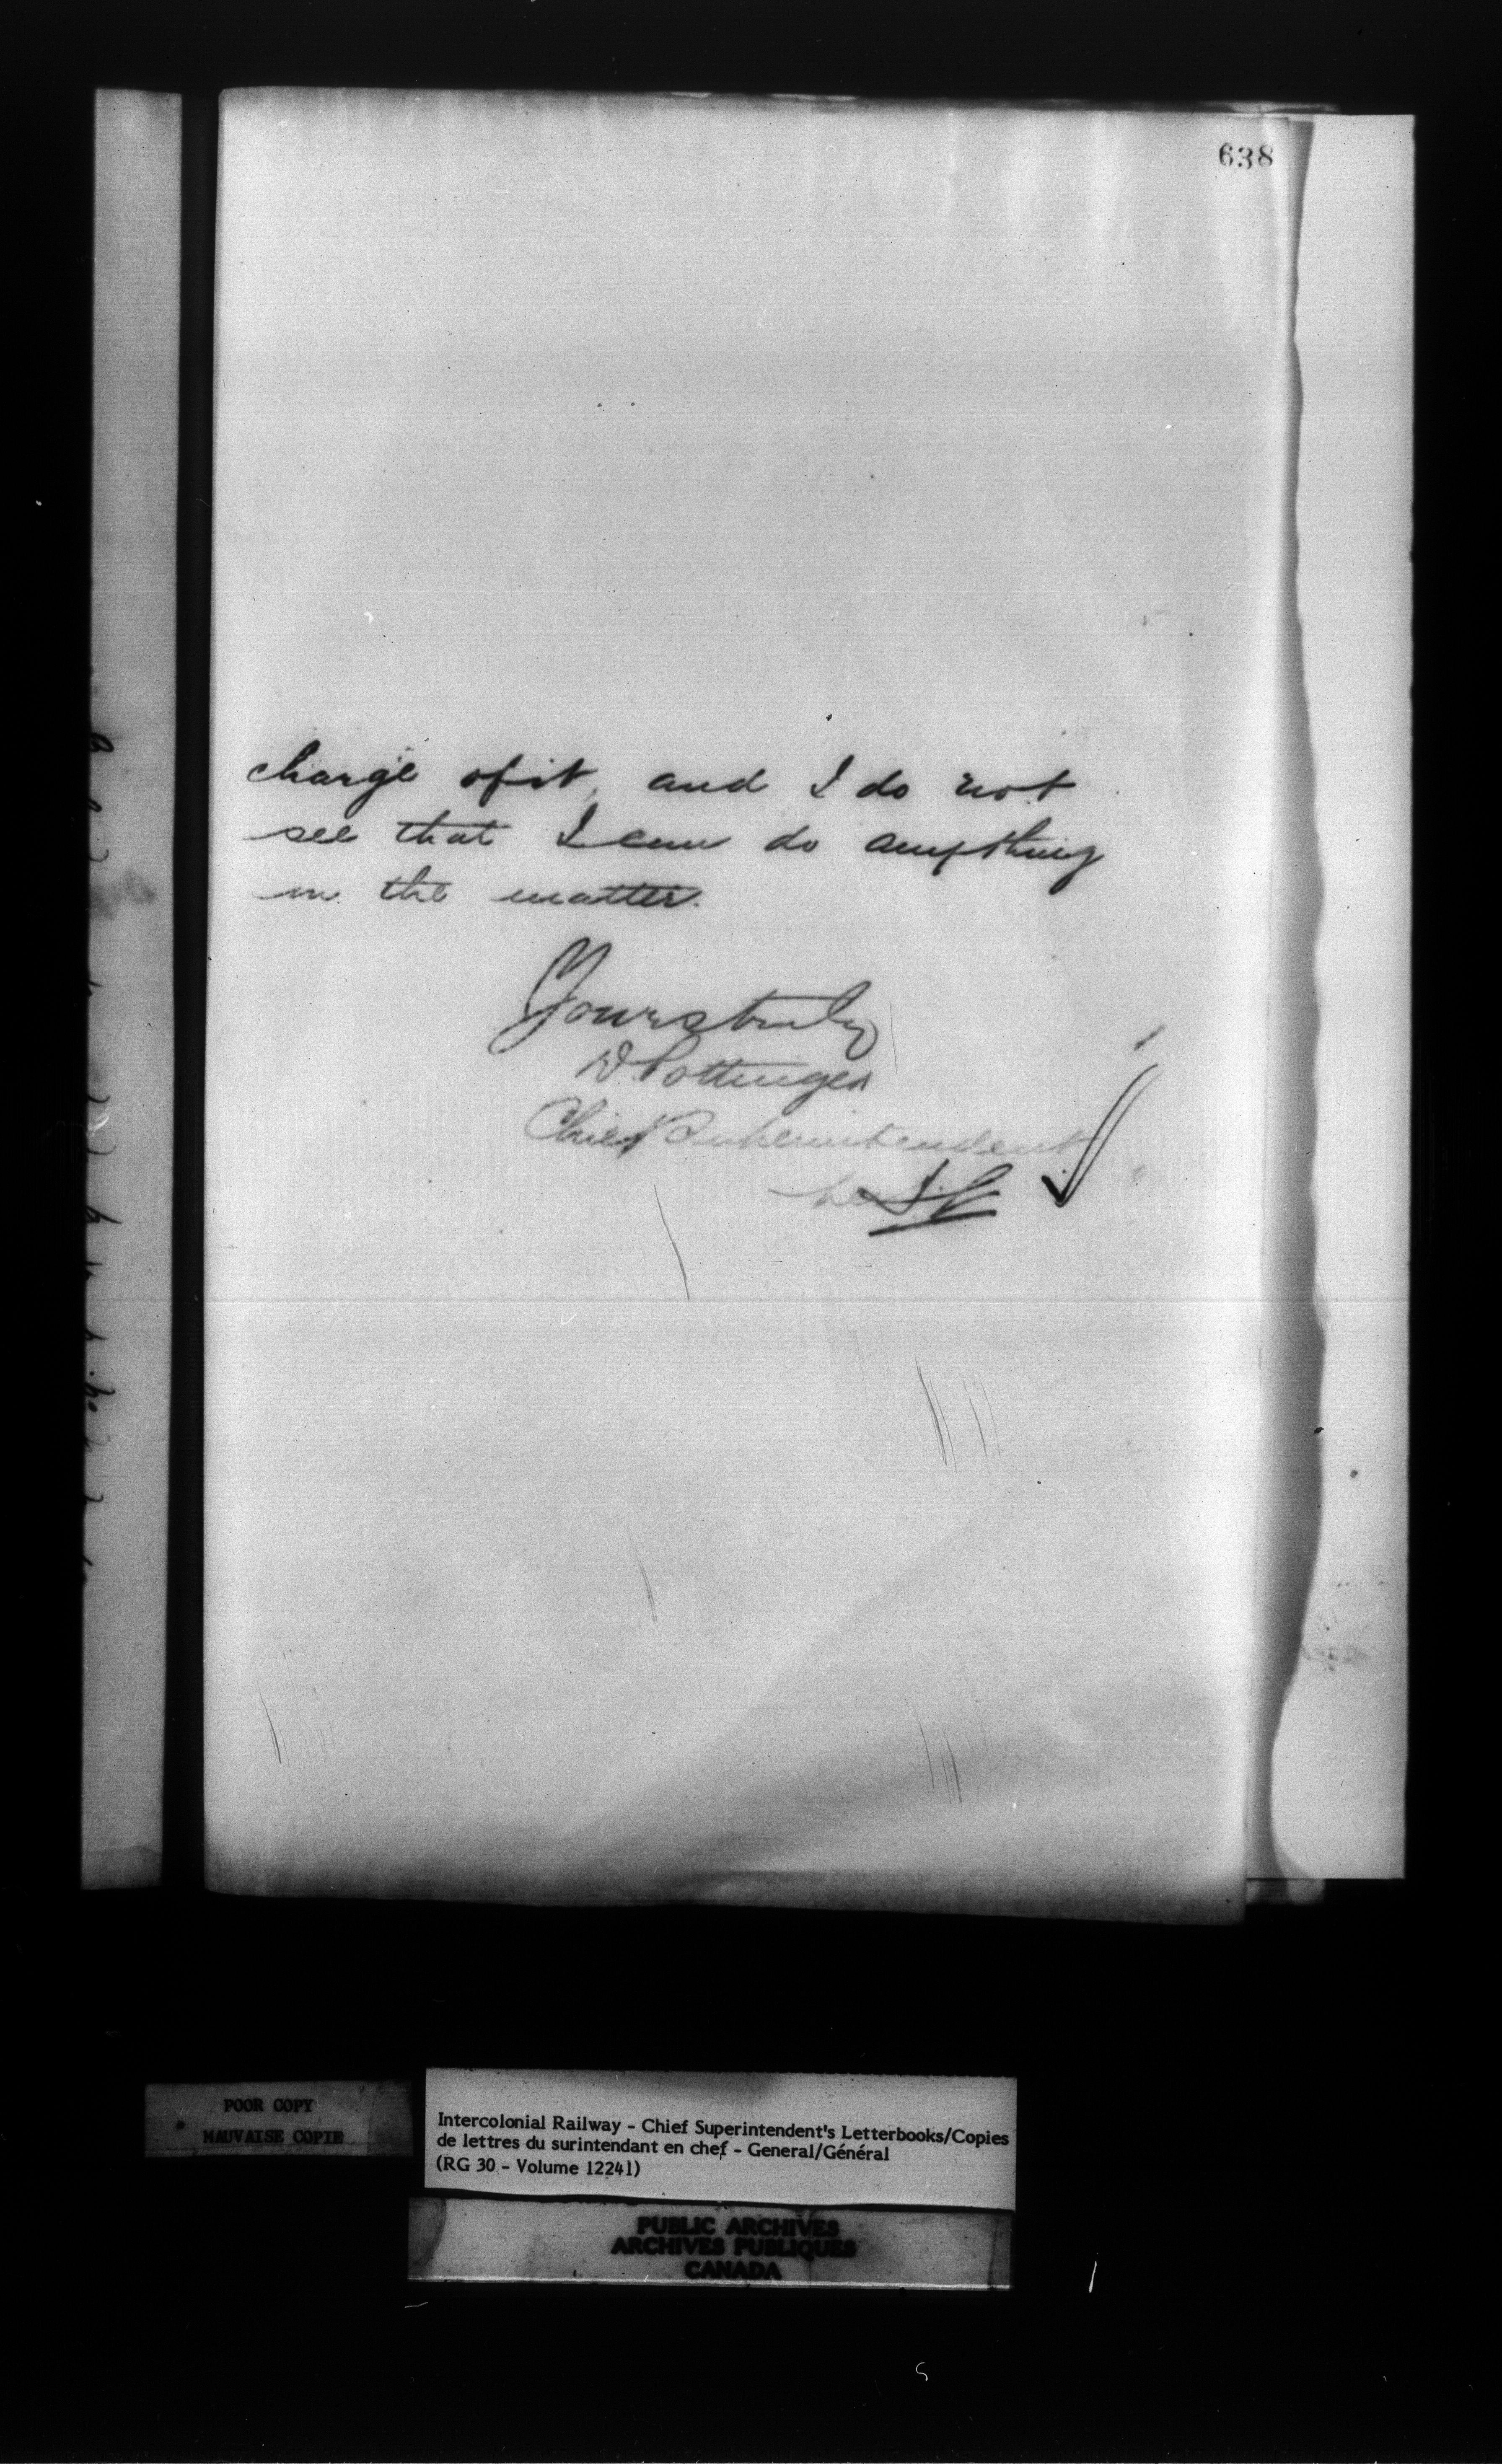 638
charge of it, and I do not
see that I can do anything
in the matter.
Yours truly
D. Pottinger
Chief Superintendent
POOR COPY
MAUVAISE COPIE
Intercolonial Railway - Chief Superintendent's Letterbooks/Copies
de lettres du surintendant en chef - General/Général
(RG 30 - Volume 12241)
PUBLIC ARCHIVES
ARCHIVES PUBLIQUES
CANADA